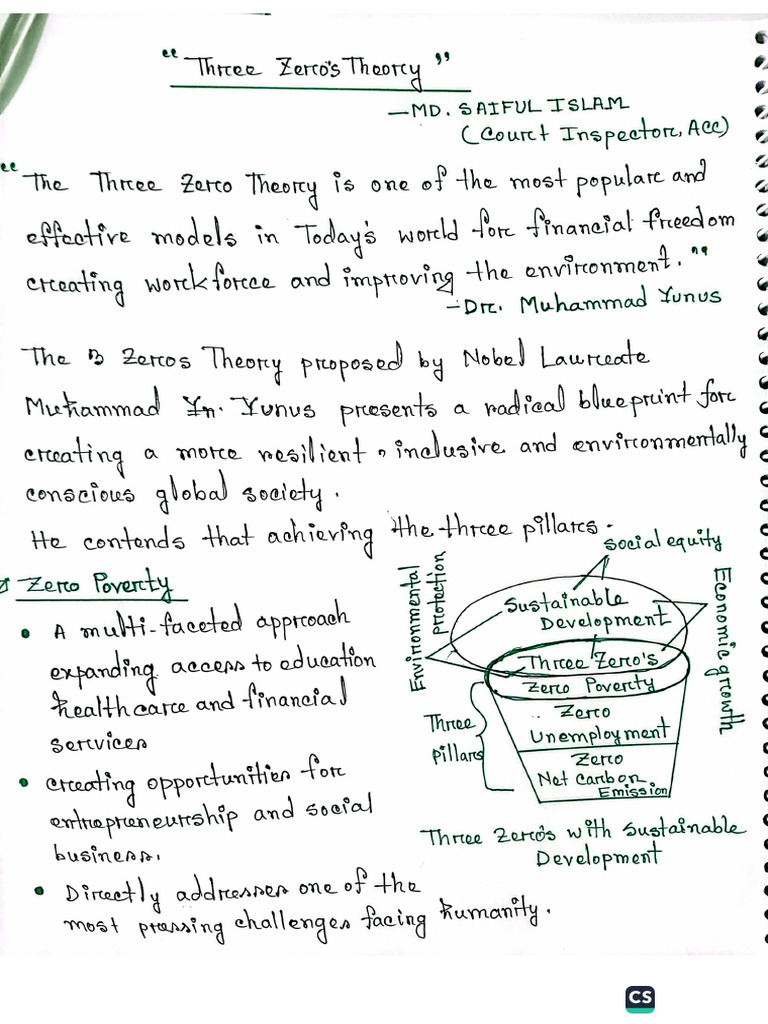 "Three Zero's Theory"
—MD. SAIFUL ISLAM
(Court Inspector, Acc)
"The Three Zero Theory is one of the most popular and
effective models in Today's world for financial freedom
creating workforce and improving the environment."
—Dr. Muhammad Yunus
The 3 Zeros Theory proposed by Nobel Laureate
Muhammad Yunus presents a radical blueprint for
creating a more resilient, inclusive and environmentally
conscious global society.
He contends that achieving the three pillars-
Zero Poverty
• A multi-faceted approach
expanding access to education
healthcare and financial
services
• creating opportunities for
entrepreneurship and social
business.
• Directly addresses one of the
most pressing challenges facing humanity.
social equity
Environmental
protection
Economic growth
Sustainable
Development
Three Zero's
Zero Poverty
Zero
Unemployment
Zero
Net carbon
Emission
Three
pillars
Three Zero's with Sustainable
Development
CS